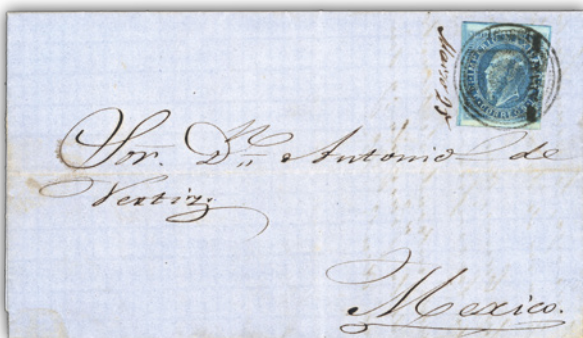 Sor. Dn. Antonio de
Vertiz.
Mexico.